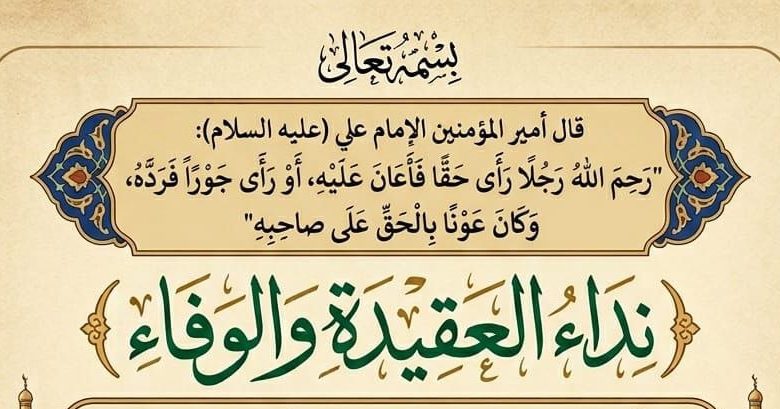 بِسْمِهِ تَعَالَى
قال أمير المؤمنين الإمام علي (عليه السلام):
"رَحِمَ اللهُ رَجُلًا رَأَى حَقًّا فَأَعَانَ عَلَيْهِ، أَوْ رَأَى جَوْرًا فَرَدَّهُ،
وَكَانَ عَوْنًا بِالْحَقِّ عَلَى صاحِبِهِ"
نِدَاءُ العَقِيْدَةِ وَالوَفَاءِ